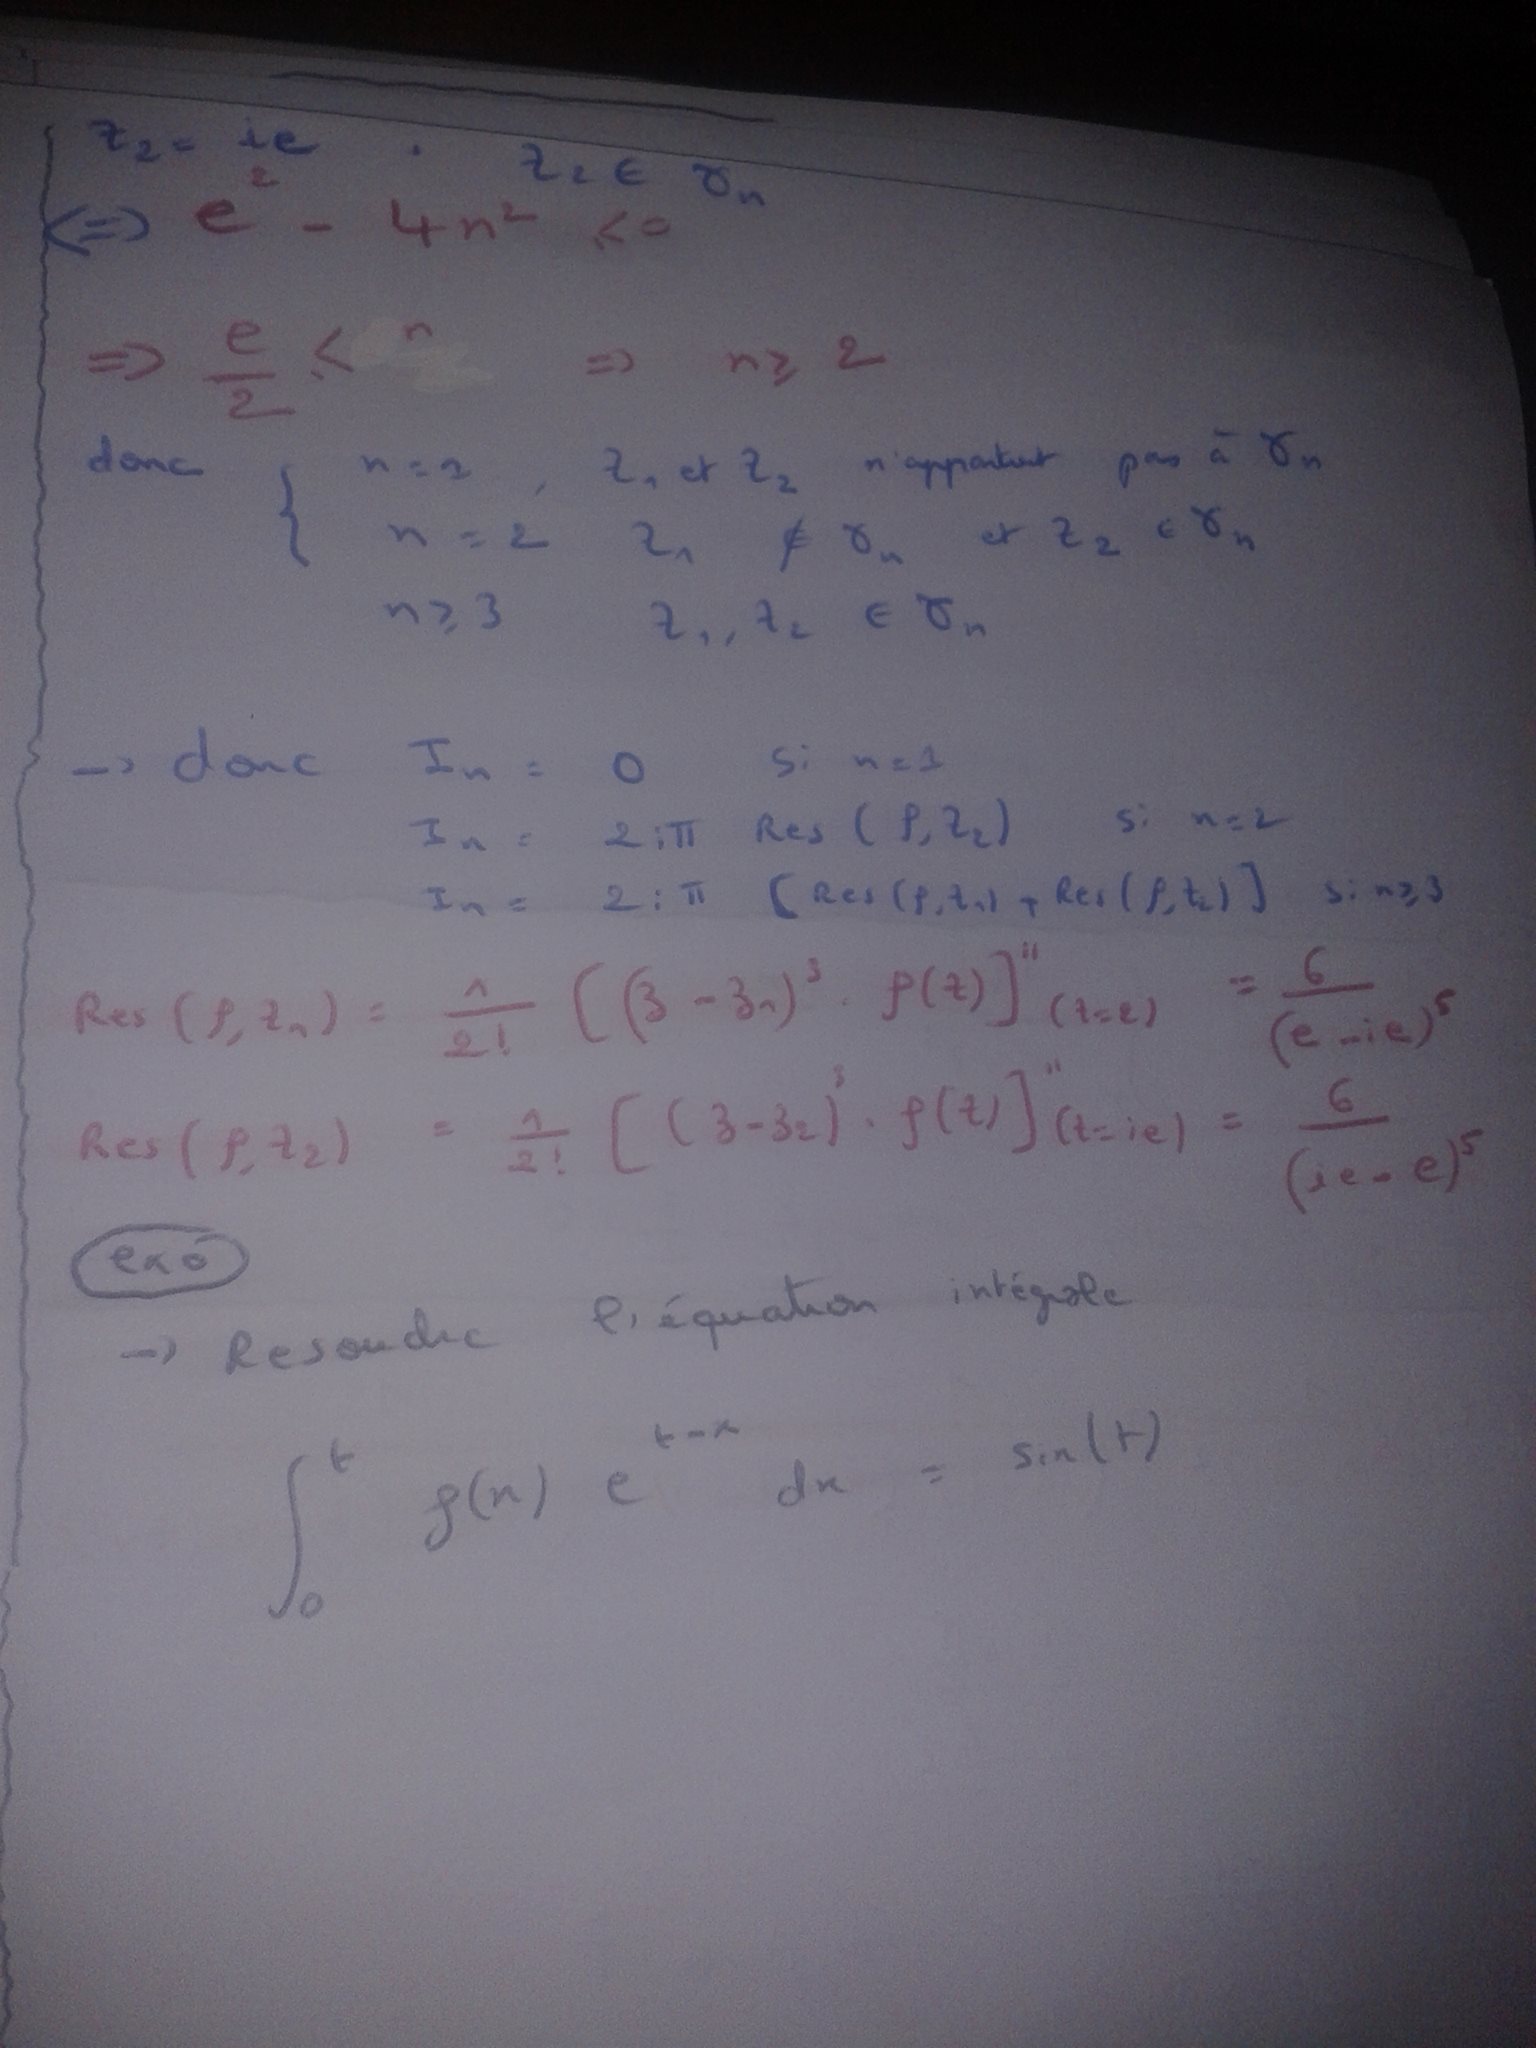 z₂ = ie . z₂ ∈ γₙ
<=> e² - 4n² < 0
=> e/2 < n => n ≥ 2
donc { n = 2 , z₁ et z₂ n'appartient pas à γₙ
n = 2 z₁ ∉ γₙ et z₂ ∈ γₙ
n ≥ 3 z₁, z₂ ∈ γₙ
→ donc Iₙ = 0 si n = 1
Iₙ = 2iπ Res (f, z₂) si n = 2
Iₙ = 2iπ [Res (f, z₁) + Res (f, z₂)] si n ≥ 3
Res (f, z₁) = 1/2! [(z - z₁)³ . f(z)]'' (z=e) = 6/(e - ie)⁵
Res (f, z₂) = 1/2! [(z - z₂)³ . f(z)]'' (z=ie) = 6/(ie - e)⁵
exo
→ Resoudre l'équation intégrale
∫₀ᵗ f(x) e^(t-x) dx = sin(t)